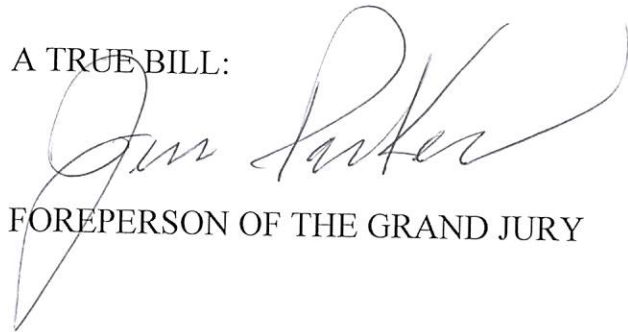 A TRUE BILL:
Jen Parker
FOREPERSON OF THE GRAND JURY